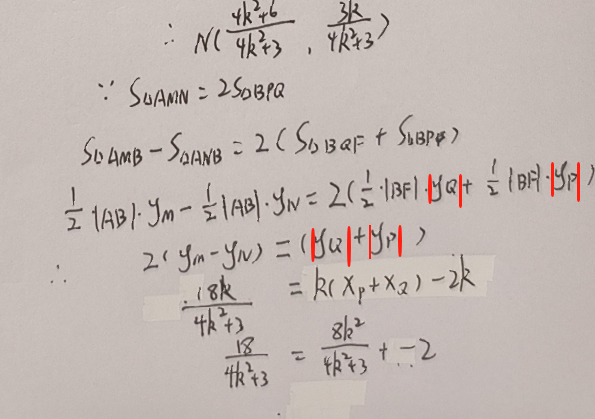 ∴ N(4k²+6/4k²+3, 3k/4k²+3)
∵ S△AMN = 2S△BPQ
S△AMB - S△ANB = 2(S△BQF + S△BPF)
1/2 |AB|·yM - 1/2 |AB|·yN = 2(1/2·|BF|·|yQ| + 1/2 |BF|·|yP|)
∴ 2(yM - yN) = (|yQ| + |yP|)
18k/4k²+3 = k(xP + xQ) - 2k
18/4k²+3 = 8k²/4k²+3 + -2